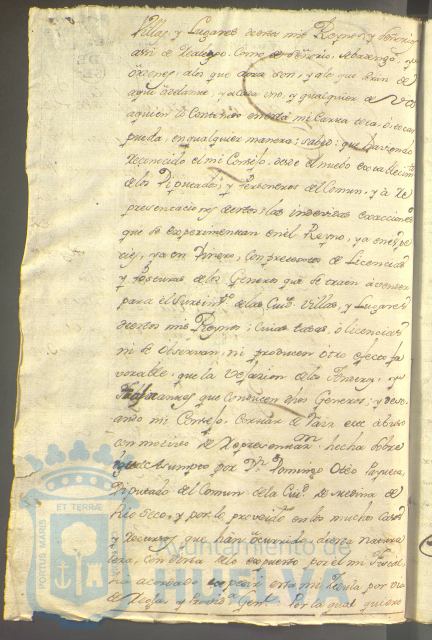 Villas, y Lugares destos mis Reynos, y Señorios
assi de Realengo, como de Señorio, Abadengo, y
Ordenes, a los que aora son, y a los que seran de
aqui adelante, y a cada uno, y qualquier de Vos
a quien lo Contenido en esta mi Carta toca, o tocar
pueda, en qualquier manera; Sabed: que haviendo
Reconocido el mi Consejo, desde el nuebo establecimto
de los Diputados, y Personeros del Comun, y a Re
presentaciones de estos, las indevidas exacciones
que se experimentan en el Reyno, ya en espe
cies, ya en Dinero, con pretextos de Licencias
y Posturas de los Generos que se traen a vender
para el Surtimto de las Ciuds Villas, y Lugares
de estos mis Reynos; cuias tasas, o licencias
ni se observan, ni producen otro efecto fa
vorable, que la vejacion de los
que conducen dhos Generos; y dese
ando mi Consejo, cortar de raiz este abuso
con motivo de Representaon hecha sobre
este Asumpto por Dn Domingo
Diputado del Comun de la Ciud de Medina de
Rio Seco, y por lo prevenido en los muchos Casos
y Recursos que han ocurrido, de esta Natura
leza, con vista de lo expuesto por el mi Fiscal,
ha acordado expedir esta mi Zedula por via
de Regla, y Provida Genl Por la qual quiero
Ayuntamiento de
HUELVA
PORTUS MARIS ET TERRÆ CUSTODIA